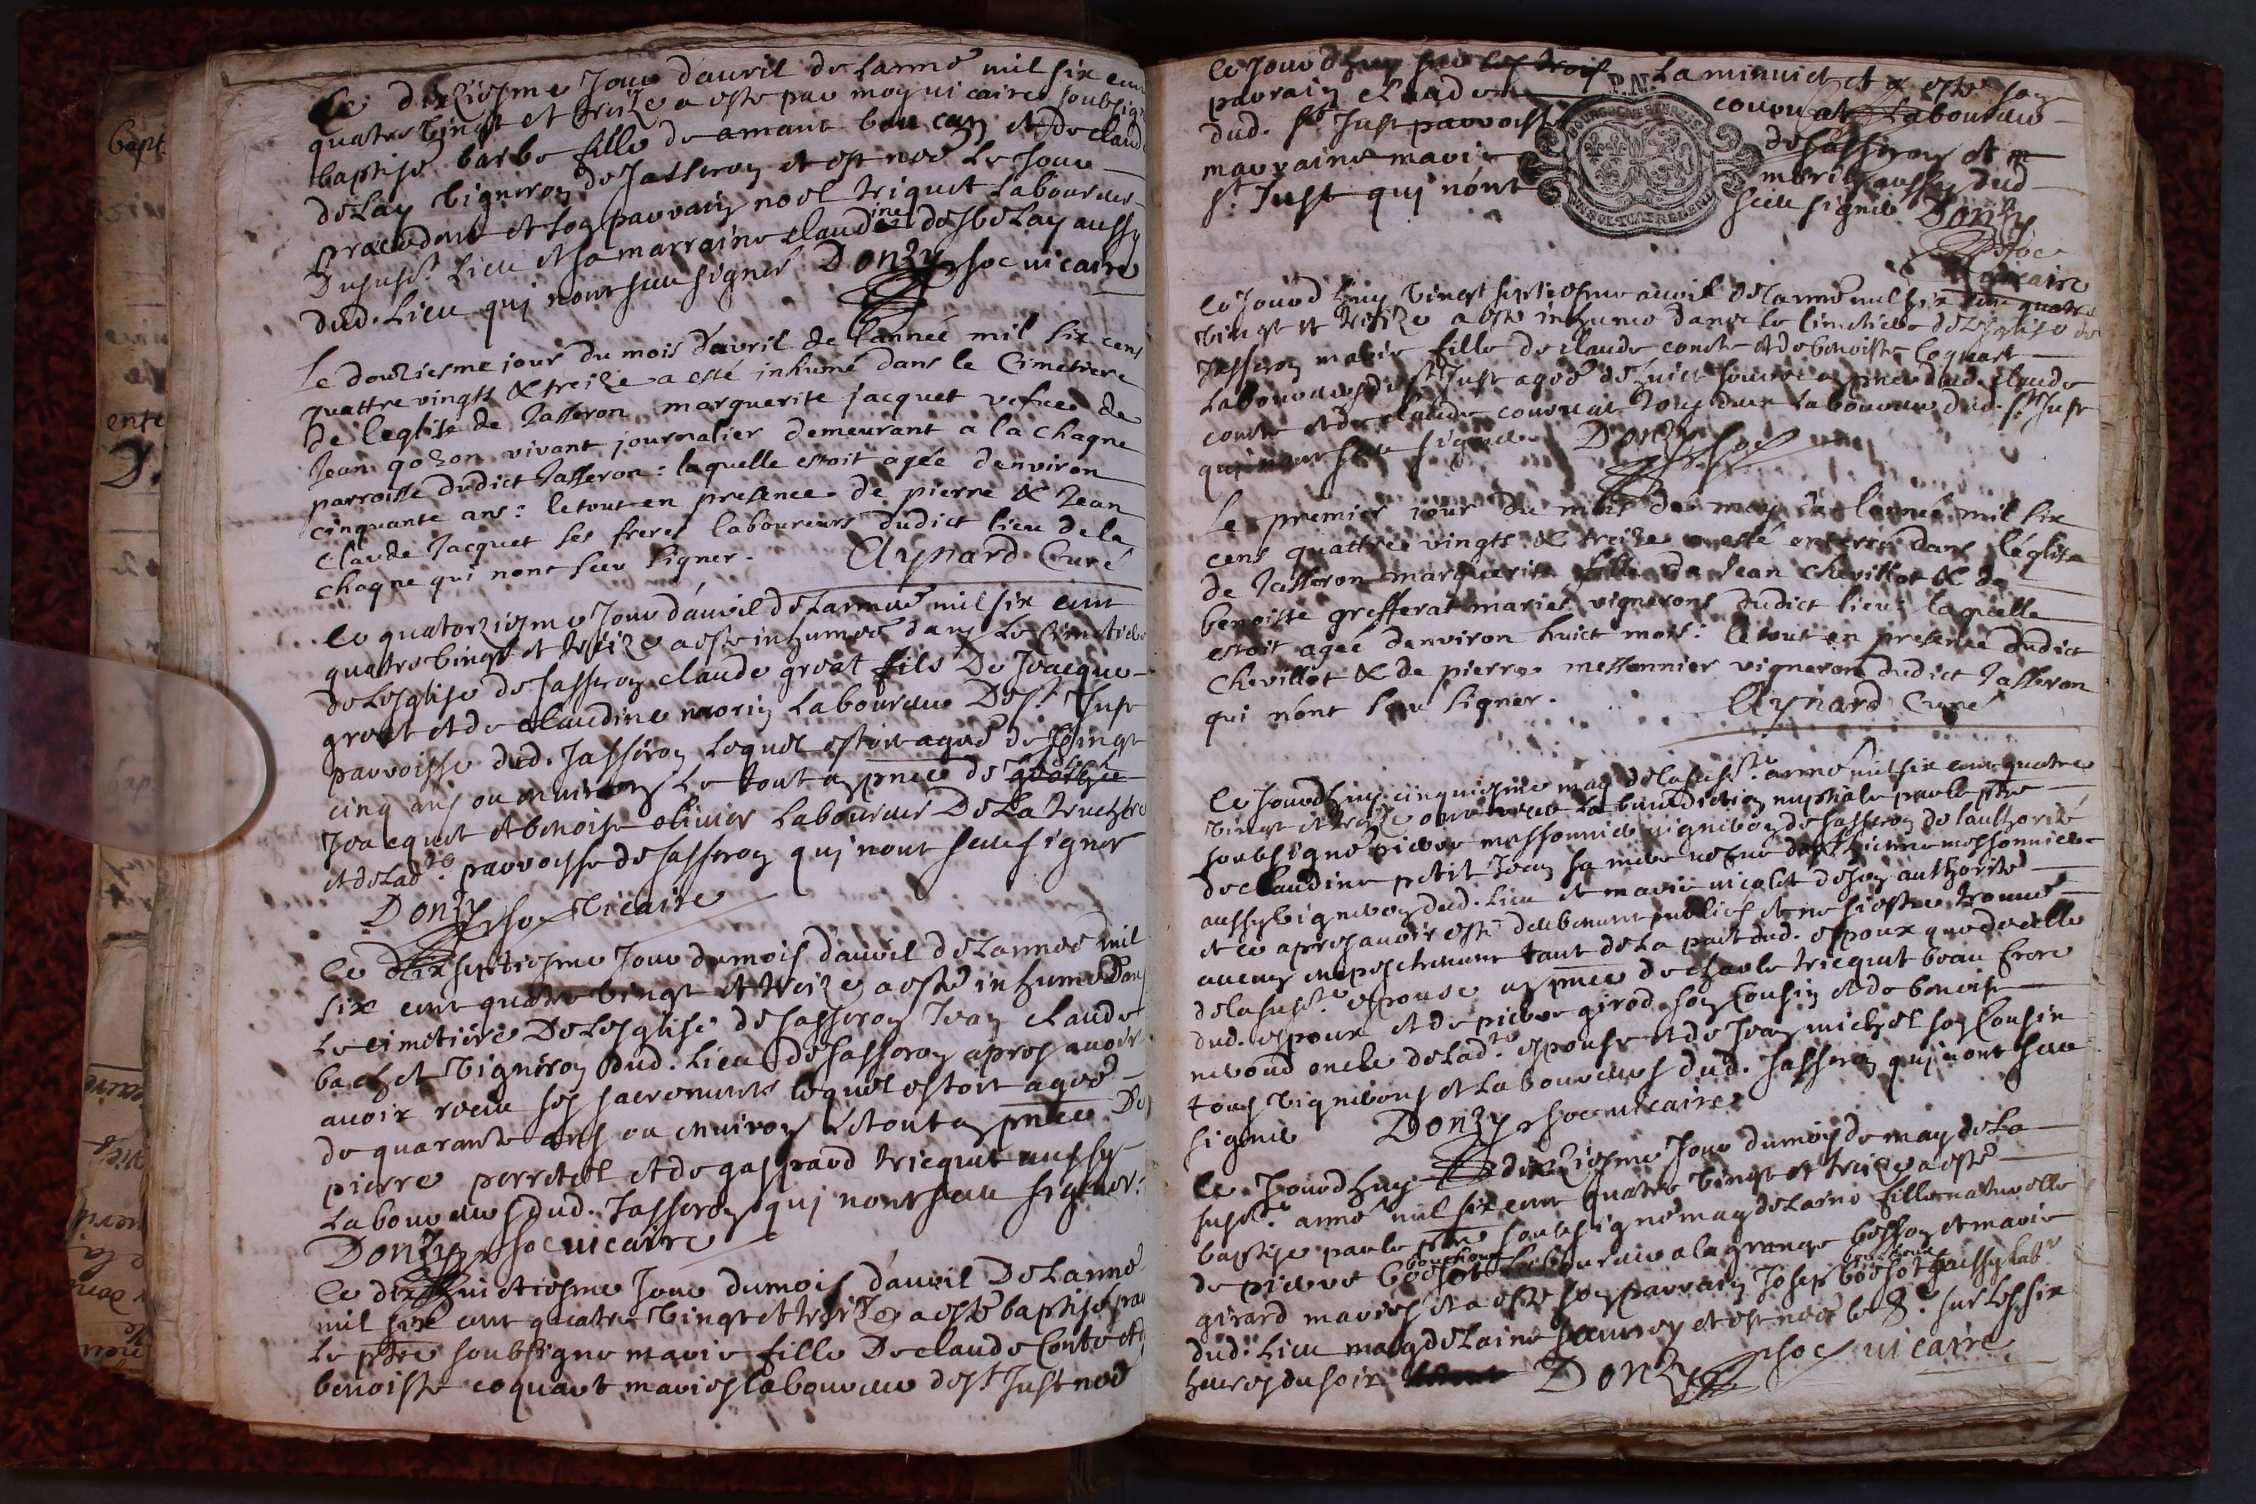 Le dixziesme Jour dauril de Lanné mil six cent
quatre vingt et treize a esté par moy vicaire soubsigné
baptisé barbe fille de amant bou can et de claud
delay vigneron de Jasseron et est neé Le Jour
præcedent et son parrain noel triquet Laboureur
Dusust. Lieu et sa marraine claudine desbelay aussy
dud. Lieu qui nont sceu signer Donzy soc vicaire
Le douziesme jour du mois davril de lannée mil six cens
quattre vingts & treize a esté inhumé dans le Cimetiere
de leglise de Jasseron marguerite jacquet vefue de
Jean gozon vivant journalier demeurant a la chagne
parroisse dudict Jasseron : laquelle estoit agée denviron
cinquante ans : le tout en presence de pierre & Jean
Claude Jacquet ses freres laboureurs dudict lieu de la
chagne qui nont sceu signer. Aynard Curé
Le quatorziesme Jour dauril de Lanneé mil six cent
quatre vingt et treize a esté inhumeé dans Le Cimetiere
de Lesglise de Jasseron claude groat fils De Jeacque
groat et de claudine morin Laboureur De st. Just
parroisse dud. Jasseron Lequel estoit agé de vingt
cinq ans ou environ Le tout en pnce de
Jeacquet et benoist olivier Laboureur De La truchere
et de Lad.te parroisse de Jasseron qui nont sceu signer
Donzy soc Vicaire
Le dix septiesme Jour du mois dauril de Lanneé mil
six cent quatre vingt et treize a esté inhumé Dans
Le cimetiére De Lesglise de Jasseron Jean claude
bachet Vigneron dud. Lieu de Jasseron apres auoir
auoir receu ses sacrements lequel estoit agé
de quarante ans ou enuiron Le tout en pnce De
pierre perretel et de gaspard tricquet aussy
Laboureurs dud. Jasseron qui nont sceu signer.
Donzy soc uicaire
Le dix huictiesme Jour du mois dauril De Lanné
mil six cent quatre vingt et treize a esté baptisé par
Le pbre soubsigné marie fille De claude Conte et
benoiste coquart mariés laboureur de st Just neé
Le Jourdhuy sur les trois La minuict et a esté son
parrain claude couvuat Laboureur
dud. st. Just parroisse de Jasseron et
marraine marie aussy dud
st. Just qui nont sceu signer Donzy
P.N.
soc
uicaire
Le Jourdhuy vingt septiesme auril de Lanné mil six cent quatre
vingt et treize a esté inhumé dans le Cimetiére de Lesglise de
Jasseron marie fille de claude conte et de benoiste Coquart
Laboureurs de st Just ageé de huict Jours en pnce dud. claude
conte et de claude couvuat tous deux Laboureur dud. st. Just
qui nont sceu signer Donzy soc
Le premier jour du mois de may de lannée mil six
cens quattre vingts & treize a esté enterré dans l'église
de Jasseron marguerite fille de Jean Chevillot & de
benoiste grefferat mariés vignerons dudict lieu : laquelle
estoit agée denviron huict mois : le tout en presence dudict
Chevillot & de pierre messonnier vigneron dudict Jasseron
qui n'ont sceu signer. Aynard Curé
Le Jourdhuy cinquiesme may de la sust.e anné mil six cent quatre
vingt et treize ont receu La benediction nuptiale par le pbre
soubsigné pierre messonnier vigneron de Jasseron de lauthorité
de claudine petit Jean sa mere uefue de Estienne messonnier
aussy vigneron dud. Lieu et marie nicolet de son authorité
et ce apres auoir esté deubement publiés et ne sestre trouué
aucun empeschement tant de La part dud. espoux que de celle
de la sust.e espouse en pnce de charle tricquet beau frere
dud. espoux et de pierre girod son Cousin et de benoist
neroud oncle de Lad.te espouse et de Jean michel son Cousin
tous vignerons et Laboureurs dud. Jasseron qui nont sceu
signer Donzy soc uicaire
Le Jourdhuy dixziesme Jour du mois de may de La
sust.e anné mil six cent quatre vingt et treize a esté
baptisé par le pbre soubsigné magdelaine fille naturelle
de pierre bochot bouchoux Laboureur a la grange besson et marie
girard mariés et a esté son parrain Josep bochot bouchoux aussy lab.r
dud. Lieu magdelaine et est neé le 8.e sur les six
heures du soir Donzy soc uicaire